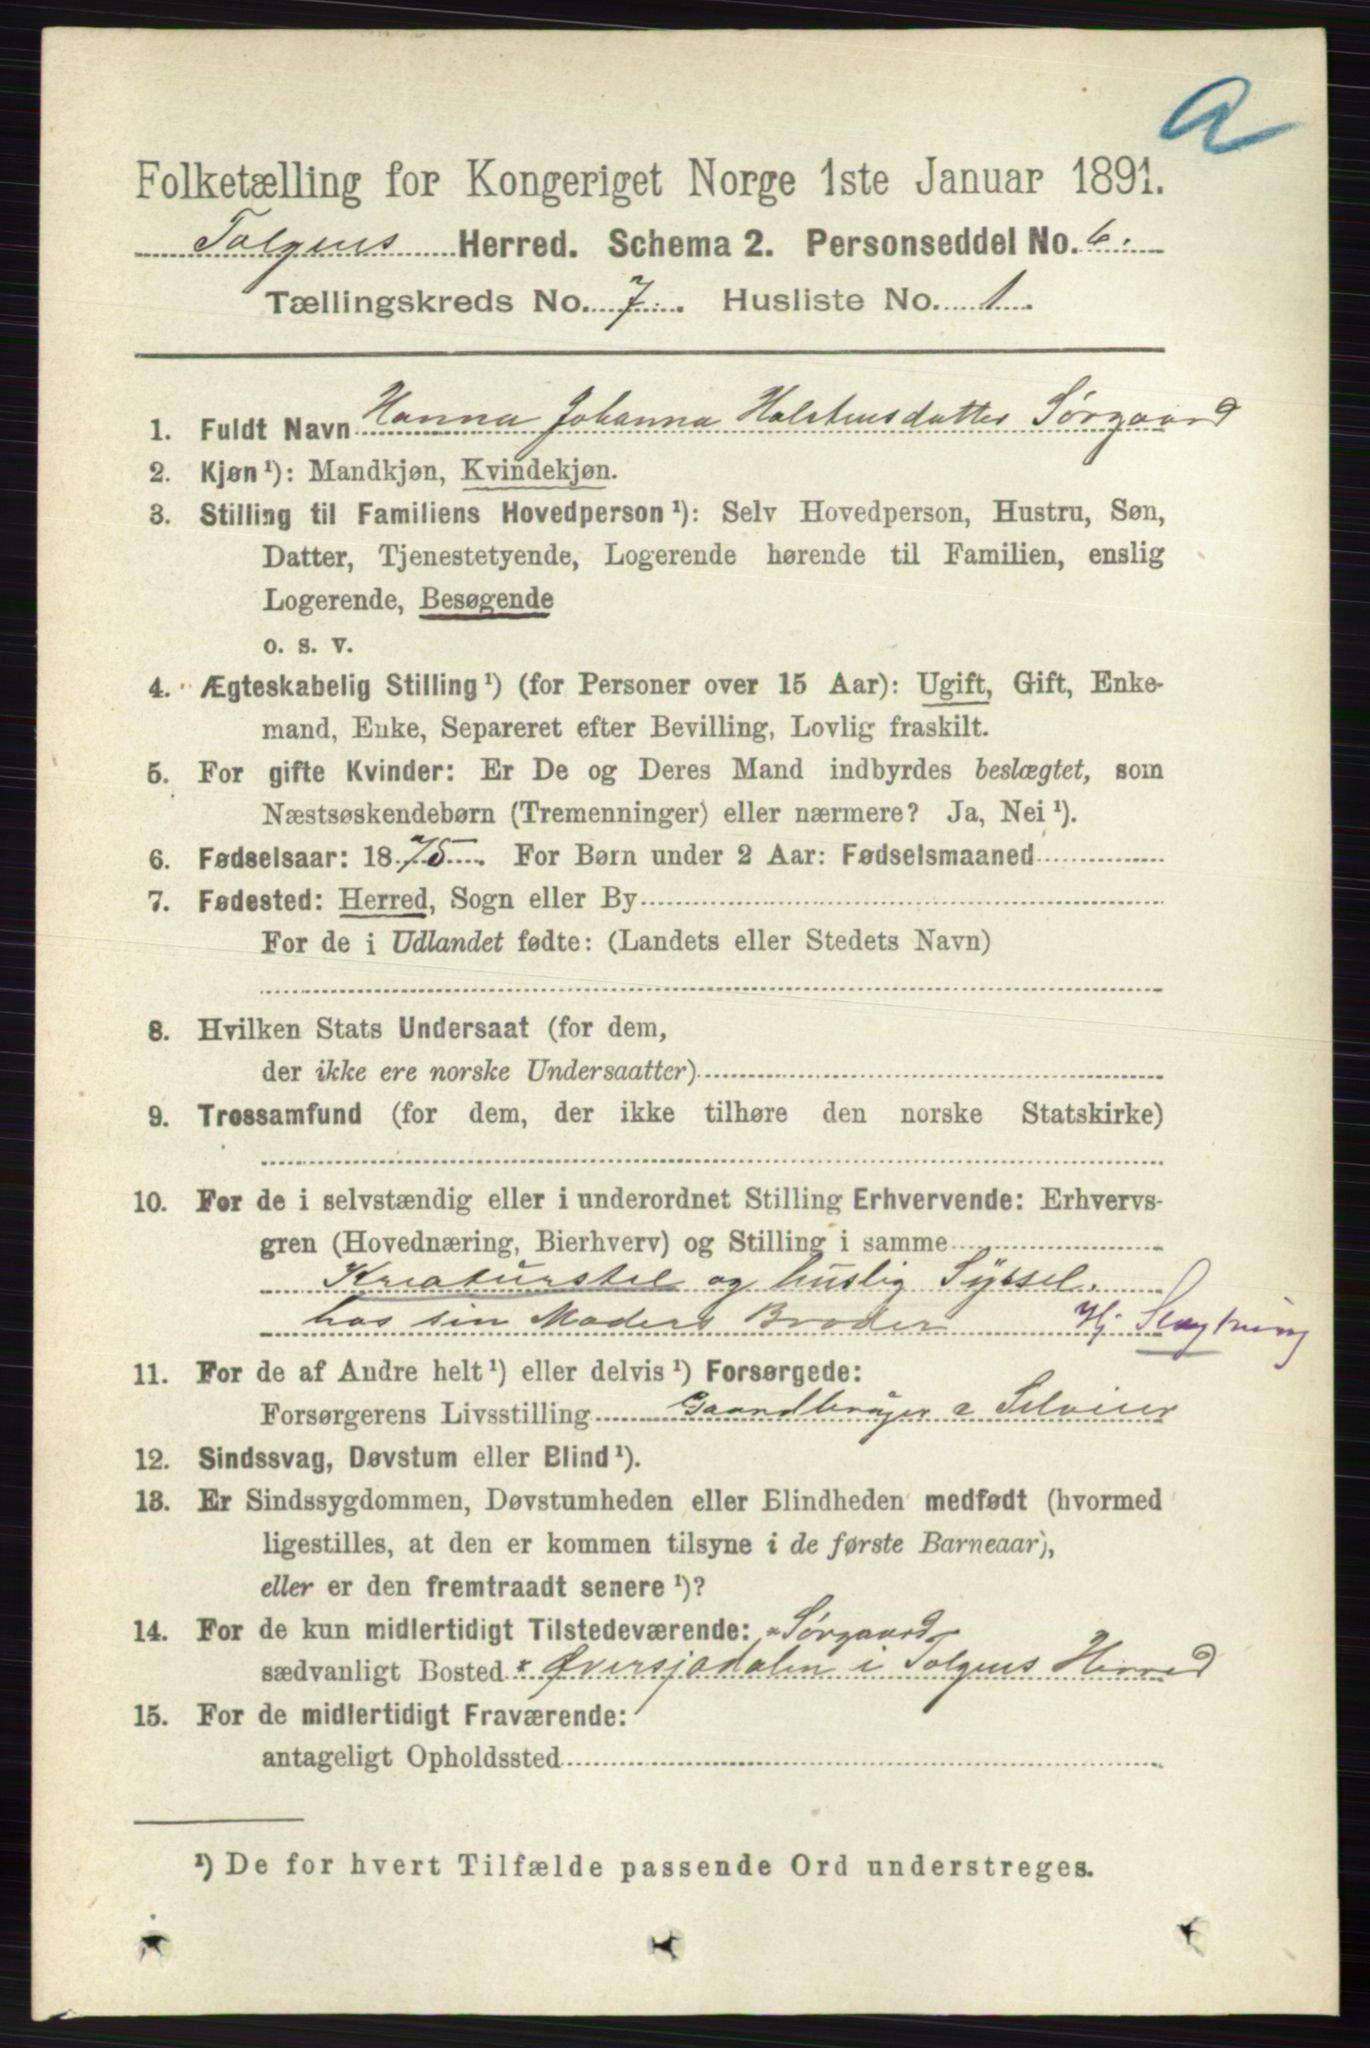 a
Folketælling for Kongeriget Norge 1ste Januar 1891.
Tolgens Herred. Schema 2. Personseddel No. 6.
Tællingskreds No. 7. Husliste No. 1.
1. Fuldt Navn Hanna Johanna Halstensdatter Sørgaard
2. Kjøn¹): Mandkjøn, Kvindekjøn.
3. Stilling til Familiens Hovedperson¹): Selv Hovedperson, Hustru, Søn,
Datter, Tjenestetyende, Logerende hørende til Familien, enslig
Logerende, Besøgende
o. s. v.
4. Ægteskabelig Stilling¹) (for Personer over 15 Aar): Ugift, Gift, Enke-
mand, Enke, Separeret efter Bevilling, Lovlig fraskilt.
5. For gifte Kvinder: Er De og Deres Mand indbyrdes beslægtet, som
Næstsøskendebørn (Tremenninger) eller nærmere? Ja, Nei¹).
6. Fødselsaar: 1875. For Børn under 2 Aar: Fødselsmaaned
7. Fødested: Herred, Sogn eller By
For de i Udlandet fødte: (Landets eller Stedets Navn)
8. Hvilken Stats Undersaat (for dem,
der ikke ere norske Undersaatter)
9. Trossamfund (for dem, der ikke tilhøre den norske Statskirke)
10. For de i selvstændig eller i underordnet Stilling Erhvervende: Erhvervs-
gren (Hovednæring, Bierhverv) og Stilling i samme
Kreaturstel og huslig Syssel.
hos sin Moders Broder Hj
11. For de af Andre helt¹) eller delvis¹) Forsørgede:
Forsørgerens Livsstilling Gaardbruger & Selveier
12. Sindssvag, Døvstum eller Blind¹).
13. Er Sindssygdommen, Døvstumheden eller Blindheden medfødt (hvormed
ligestilles, at den er kommen tilsyne i de første Barneaar),
eller er den fremtraadt senere¹)?
14. For de kun midlertidigt Tilstedeværende: Sørgaard
sædvanligt Bosted Øversjødalen i Tolgens Herred
15. For de midlertidigt Fraværende:
antageligt Opholdssted
¹) De for hvert Tilfælde passende Ord understreges.